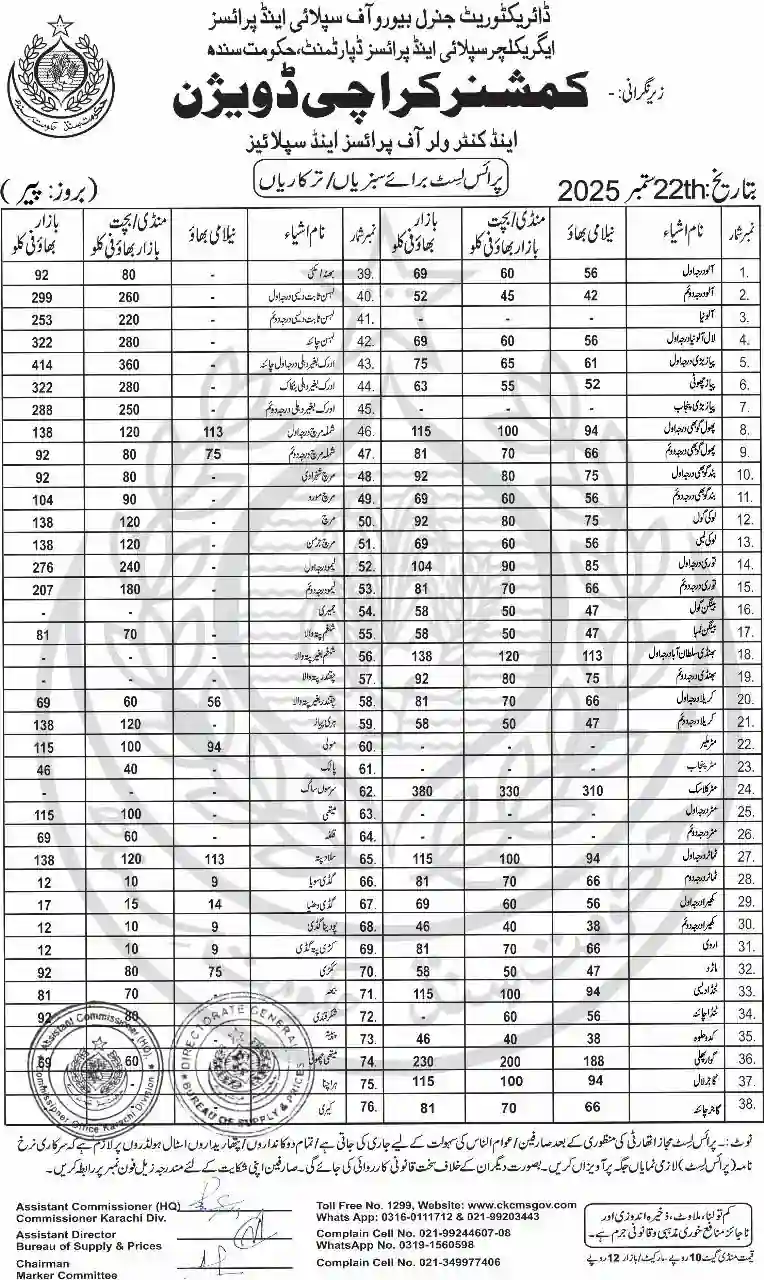 ڈائریکٹوریٹ جنرل بیورو آف سپلائی اینڈ پرائسز
ایگریکلچر سپلائی اینڈ پرائسز ڈپارٹمنٹ، حکومت سندھ
زیر نگرانی: -
کمشنر کراچی ڈویژن
اینڈ کنٹرولر آف پرائسز اینڈ سپلائیز
بتاریخ: 22th ستمبر 2025
پرائس لسٹ برائے سبزیاں/ترکاریاں
(بروز: پیر)
نمبر شمار نام اشیاء نیلامی بھاؤ منڈی/بچت بازار بھاؤ فی کلو بازار بھاؤ فی کلو
1. آلو درجہ اول 56 60 69
2. آلو درجہ دوئم 42 45 52
3. آلو نیا - - -
4. لال آلو نیا درجہ اول 56 60 69
5. پیاز بڑی درجہ اول 61 65 75
6. پیاز چھوٹی 52 55 63
7. پیاز بڑی پنجاب - - -
8. پھول گوبھی درجہ اول 94 100 115
9. پھول گوبھی درجہ دوئم 66 70 81
10. بند گوبھی درجہ اول 75 80 92
11. بند گوبھی درجہ دوئم 56 60 69
12. لوکی گول 75 80 92
13. لوکی لمبی 56 60 69
14. توری درجہ اول 85 90 104
15. توری درجہ دوئم 66 70 81
16. بینگن گول 47 50 58
17. بینگن لمبا 47 50 58
18. بھنڈی سلطان آباد درجہ اول 113 120 138
19. بھنڈی درجہ دوئم 75 80 92
20. کریلا درجہ اول 66 70 81
21. کریلا درجہ دوئم 47 50 58
22. مٹر ملیر - - -
23. مٹر پنجاب - - -
24. مٹر کلاسک 310 330 380
25. مٹر درجہ اول - - -
26. مٹر درجہ دوئم - - -
27. ٹماٹر درجہ اول 94 100 115
28. ٹماٹر درجہ دوم 66 70 81
29. کھیرا درجہ اول 56 60 69
30. کھیرا درجہ دوئم 38 40 46
31. اروی 66 70 81
32. مارو 47 50 58
33. ٹنڈا دیسی 94 100 115
34. ٹنڈا چائنہ 56 60 -
35. کدو حلوہ 38 40 46
36. گوار پھلی 188 200 230
37. گاجر لال 94 100 115
38. گاجر چائنہ 66 70 81
نمبر شمار نام اشیاء نیلامی بھاؤ منڈی/بچت بازار بھاؤ فی کلو بازار بھاؤ فی کلو
39. - 80 92
40. لہسن ثابت دیسی درجہ اول - 260 299
41. لہسن ثابت دیسی درجہ دوئم - 220 253
42. لہسن چائنہ - 280 322
43. ادرک بغیر دھلی درجہ اول چائنہ - 360 414
44. ادرک بغیر دھلی بنکاک - 280 322
45. ادرک بغیر دھلی درجہ دوئم - 250 288
46. شملہ مرچ درجہ اول 113 120 138
47. شملہ مرچ درجہ دوئم 75 80 92
48. مرچ شہزادی - 80 92
49. مرچ مورد - 90 104
50. مرچ - 120 138
51. مرچ جرمن - 120 138
52. لیمو درجہ اول - 240 276
53. لیمو درجہ دوئم - 180 207
54. جمیری - - -
55. شلغم پتہ والا - 70 81
56. شلغم بغیر پتہ والا - - -
57. چقندر پتہ والا - - -
58. چقندر بغیر پتہ والا 56 60 69
59. ہرا پیاز - 120 138
60. مولی 94 100 115
61. پالک - 40 46
62. سرسوں ساگ - - -
63. میتھی - 100 115
64. قلفہ - 60 69
65. سلاد پتہ 113 120 138
66. گڈی سویا 9 10 12
67. گڈی دھنیا 14 15 17
68. پودینا گڈی 9 10 12
69. کڑی پتہ گڈی 9 10 12
70. ککڑی 75 80 92
71. 70 81
72. شکر قندی 80 92
73.
74. میتھی چھوٹی 60 69
75. ہرا چنا
76. کیری
نوٹ:۔ پرائس لسٹ مجاز اتھارٹی کی منظوری کے بعد صارفین/عوام الناس کی سہولت کے لیے جاری کی جاتی ہے/تمام دوکانداروں/پتھاریداروں اسٹال ہولڈروں پر لازم ہے کہ سرکاری نرخ
نامہ (پرائس لسٹ) لازمی نمایاں جگہ پر آویزاں کریں۔ بصورت دیگران کے خلاف سخت قانونی کارروائی کی جائے گی۔ صارفین اپنی شکایت کے لئے مندرجہ زیل فون نمبر پر رابطہ کریں۔
Assistant Commissioner (HQ)
Commissioner Karachi Div.
Assistant Director
Bureau of Supply & Prices
Chairman
Marker Committee
Toll Free No. 1299, Website: www.ckcmsgov.com
Whats App: 0316-0111712 & 021-99203443
Complain Cell No. 021-99244607-08
WhatsApp No. 0319-1560598
Complain Cell No. 021-349977406
کم تولنا، ملاوٹ، ذخیرہ اندوزی اور
ناجائز منافع خوری مذہبی و قانونی جرم ہے۔
قیمت منڈی گیٹ 10 روپے - مارکیٹ/بازار 12 روپے
Assistant Commissioner (HQ).
Commissioner Office Karachi Division
DIRECTORATE GENERAL
BUREAU OF SUPPLY & PRICES